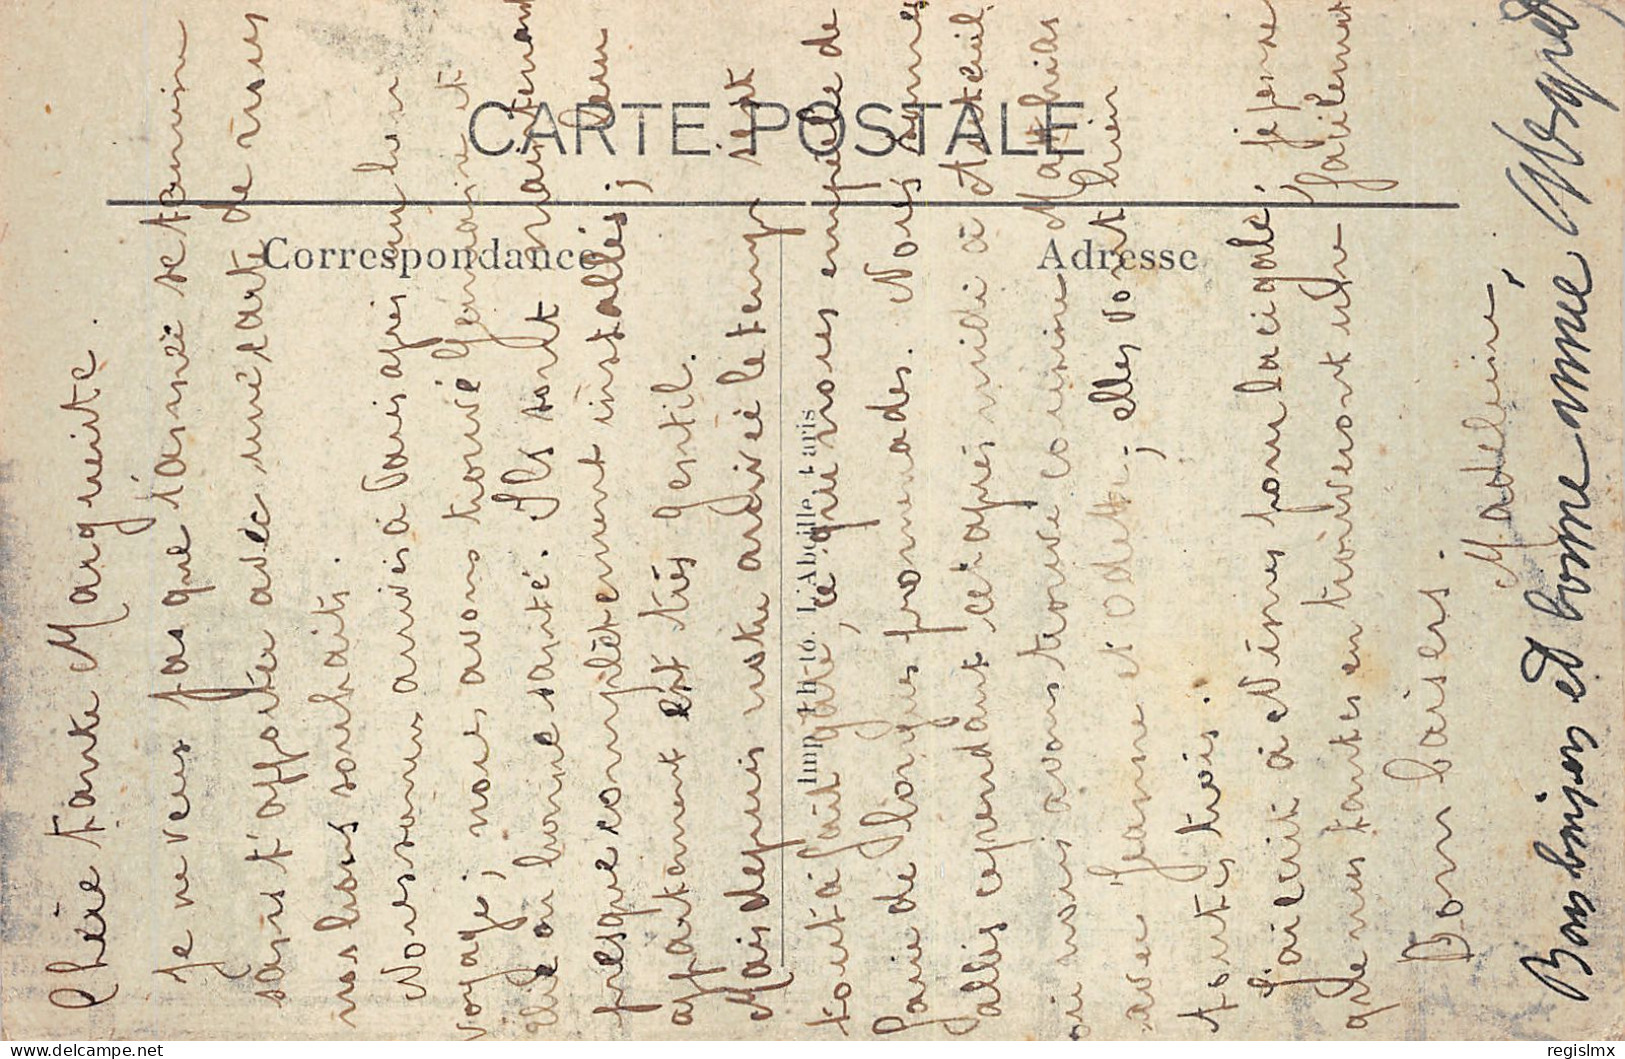 CARTE POSTALE
Correspondance
Adresse
Imp. Ph-to. L'Abeille Paris
Chère tante Marguerite.
Je ne veux pas que l'année se termine
sans t'apporter avec une carte de nous
nos bons souhaits.
Nous sommes arrivés à Paris après un bon
voyage; nous avons trouvé Germaine et
en bonne santé. Ils sont maintenant
presque complètement installés; leur
appartement est très gentil.
Mais depuis notre arrivée le temps est
tout à fait gâté, ce qui nous empêche de
faire de longues promenades. Nous sommes
allés cependant cet après midi à Auteuil
où nous avons trouvé cousine Mathias
avec Jeanne et Odette; elles vont bien
toutes trois.
J'ai écrit à Nîmes pour la cigale, je pense
que mes tantes en trouveront une facilement
Bons baisers.
Madeleine,
Bons baisers et bonne année